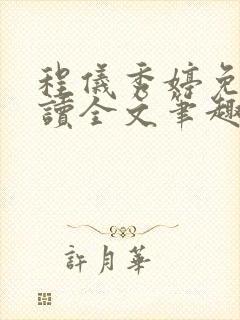 程儀秀婷免
讀全文筆趣
許月華